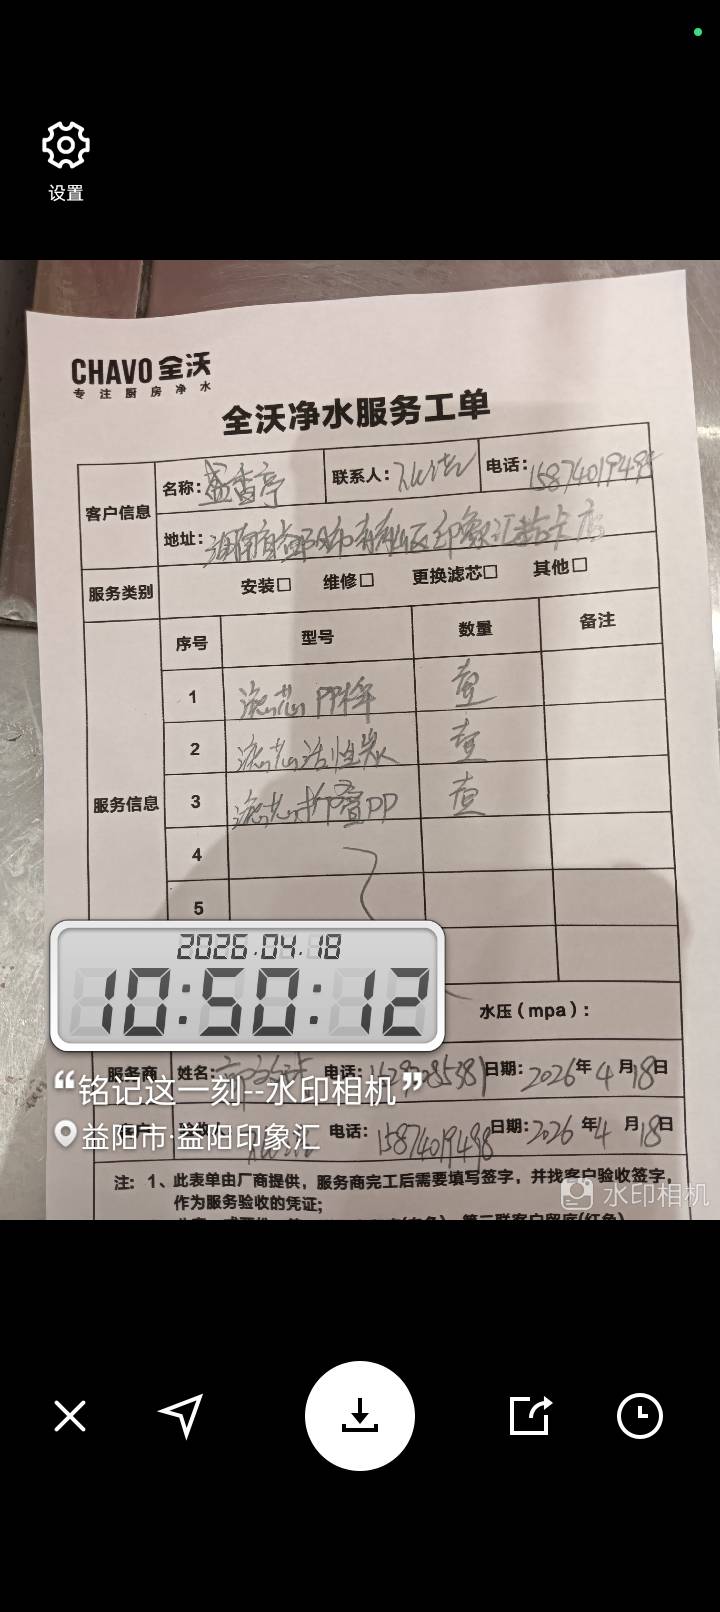 设置
CHAVO 全沃
专注厨房净水
全沃净水服务工单
客户信息 名称: 盛香亭 联系人: 电话: 1587401949
地址: 湖南省益阳市 区印象汇 店
服务类别 安装□ 维修□ 更换滤芯□ 其他□
服务信息 序号 型号 数量 备注
1 滤芯PP棉 壹
2 滤芯活性炭 壹
3 滤芯折叠PP 壹
4
5
2026.04.18
10:50:12
水压（mpa）:
服务商 姓名: 电话: 日期: 2026年4月18日
“铭记这一刻--水印相机”
电话: 15874019498 日期: 2026年4月18日
益阳市·益阳印象汇
注: 1、此表单由厂商提供，服务商完工后需要填写签字，并找客户验收签字，
作为服务验收的凭证;
水印相机